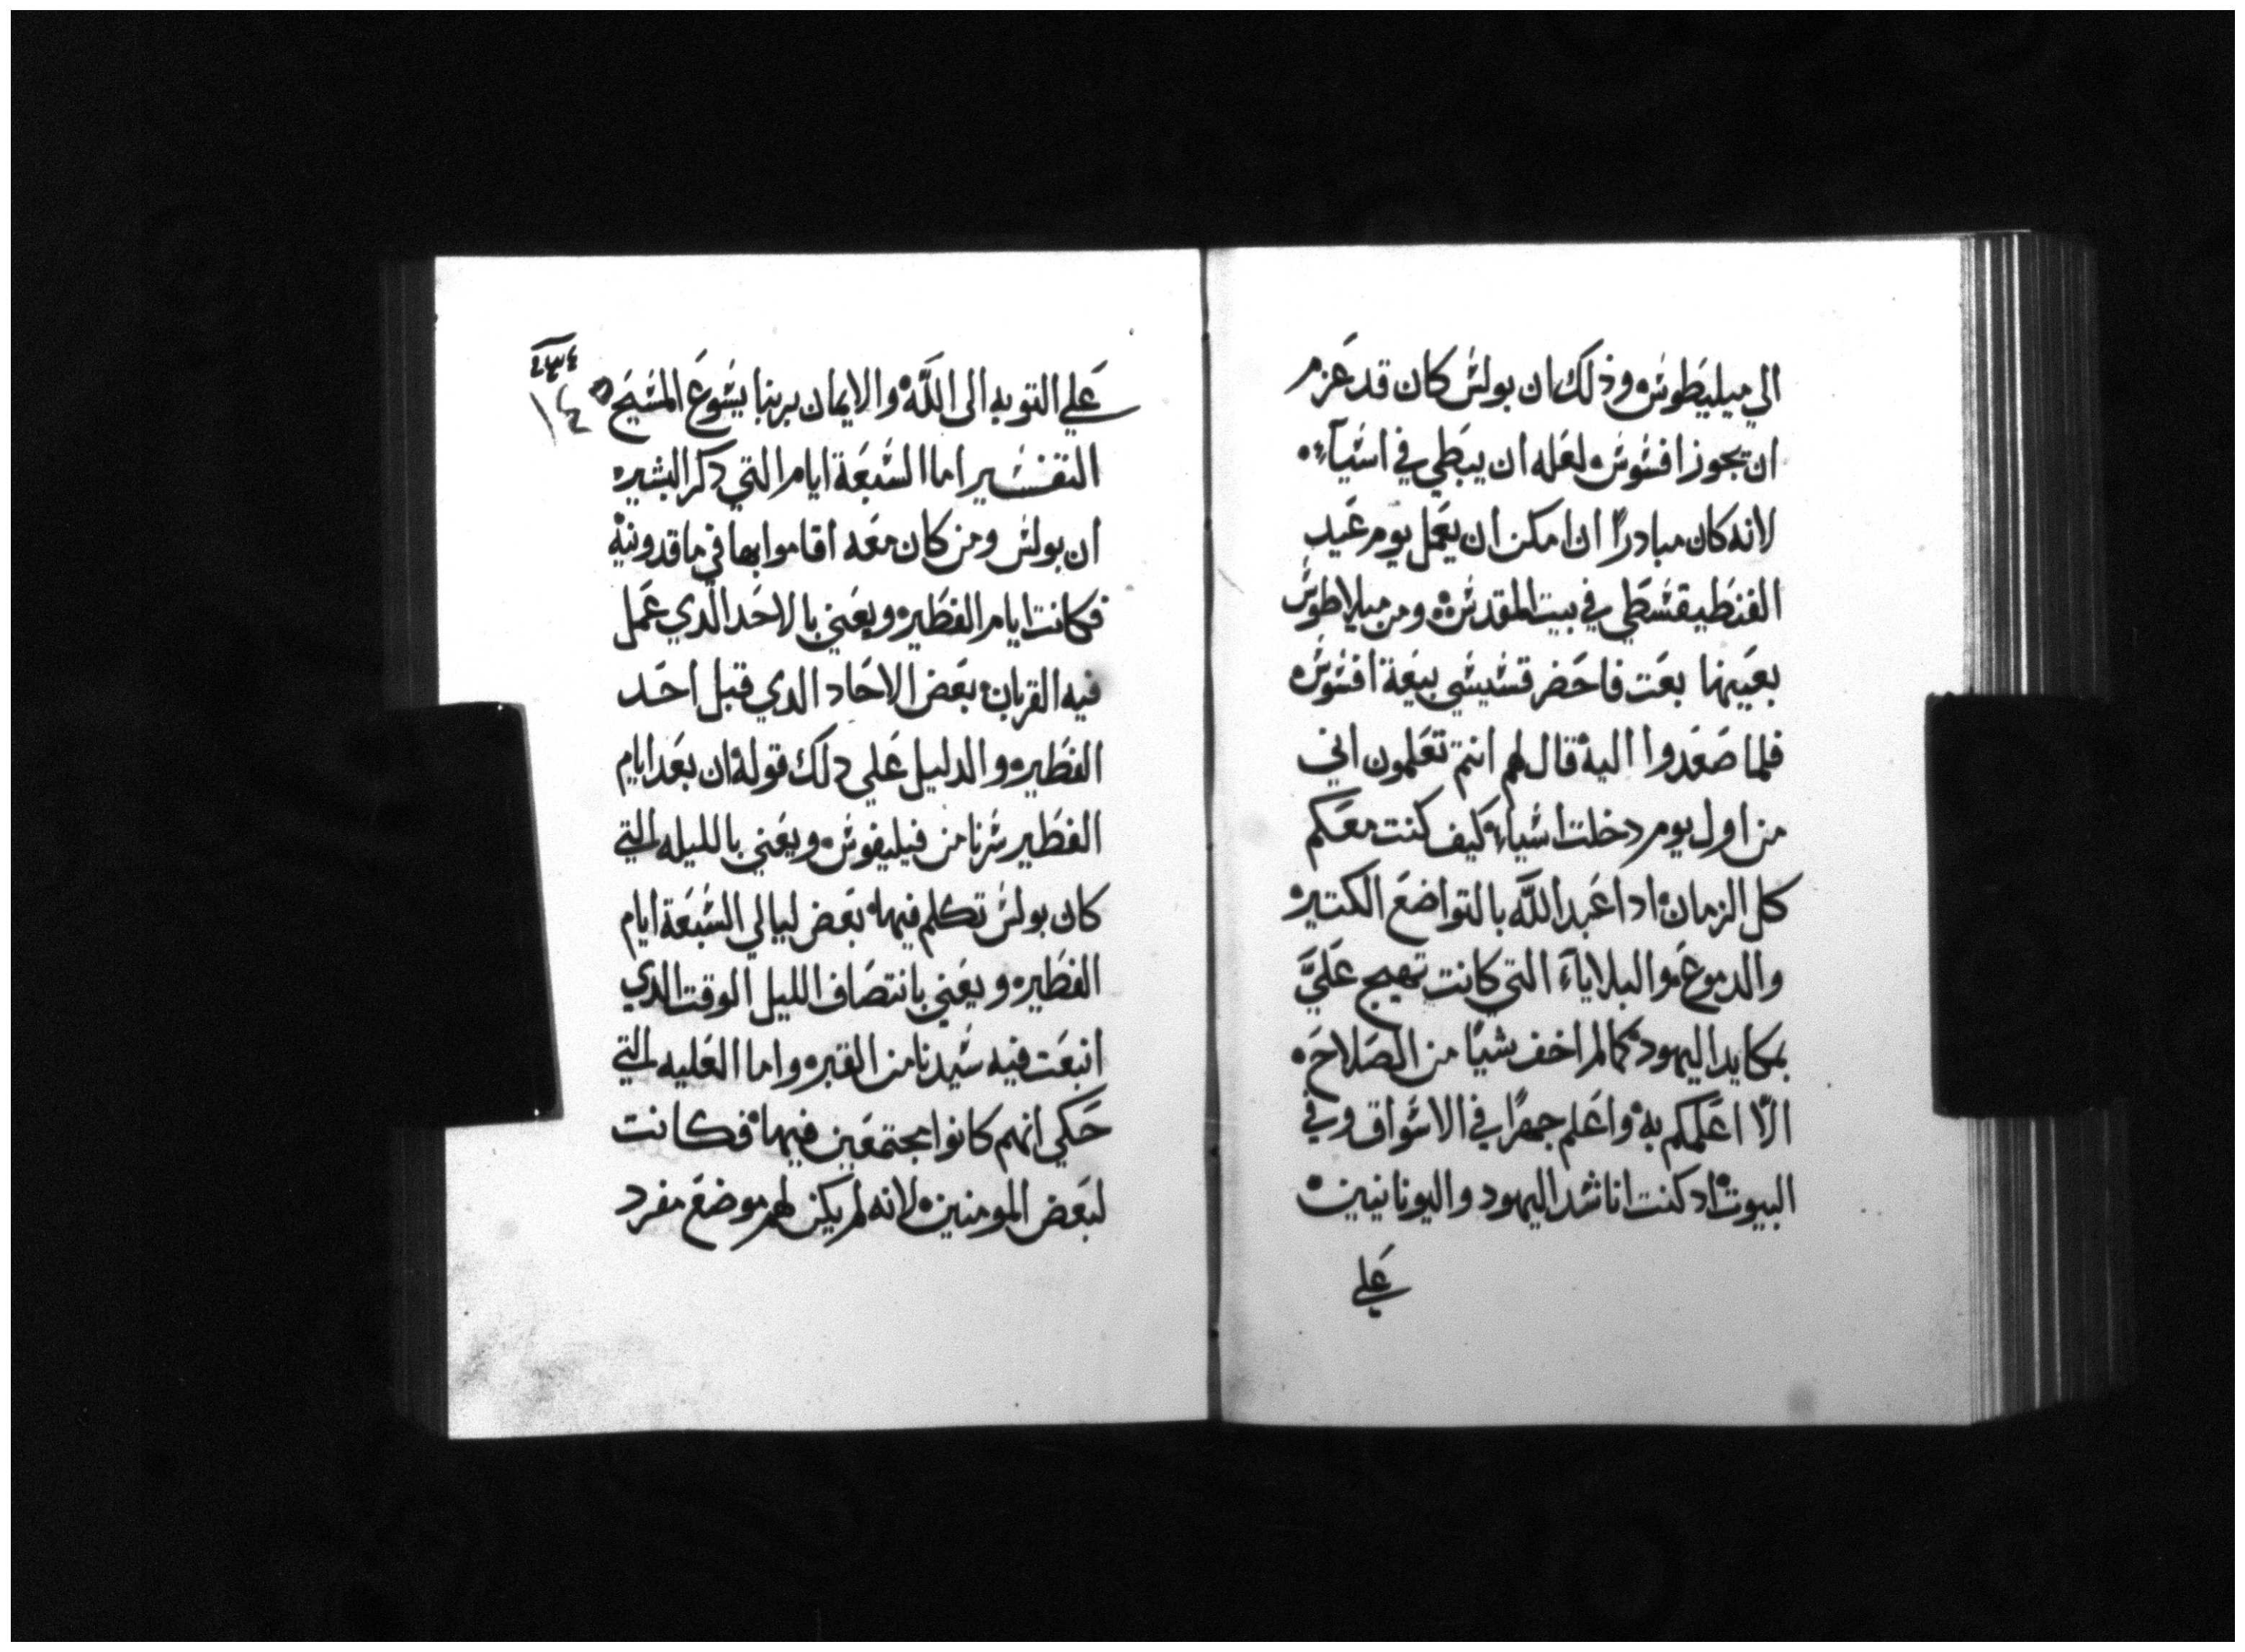 الي ميليطوس وذلك ان بولس كان قد عزم
ان يجوز افسوس لعله ان يبطي في اسيا
لانه كان مبادرًا ان امكن ان يعمل يوم عيد
الفنطيقسطي في بيت المقدس ومن ميلاطوس
بعينها بعت فاحضر قسيسي بيعة افسوس
فلما صعدوا اليه قال لهم انتم تعلمون اني
من اول يوم دخلت اسياء كيف كنت معكم
كل الزمان اداعبد الله بالتواضع الكتير
والدموع والبلاياء التي كانت تهيج عليَّ
بمكايد اليهود كما لم اخف شيًا من الصلاحه
الّا اعلمكم به واعلم جهرًا في الاسواق وفي
البيوت اد كنت اناشد اليهود واليونانيين
علي
على التوبه الى الله والايمان بربنا يسوع المسيح
التفسير اما السبعة ايام التي دكر البشير
ان بولس ومن كان معه اقاموا بها في ماقدونية
فكانت ايام الفطير ويعني بالاحد الدي عمل
فيه القربان بعض الاحاد الدي قبل احد
الفطير والدليل علي دلك قوله ان بعد ايام
الفطير سرنا من فيليفوس ويعني بالليله التي
كان بولس تكلم فيها بعض ليالي السبعة ايام
الفطير ويعني بانتصاف الليل الوقت الدي
انبعت فيه سيدنا من القبر واما العليه التي
حكي انهم كانوا مجتمعين فيها فكانت
لبعض المومنين لانه لم يكن لهم موضع مفرد